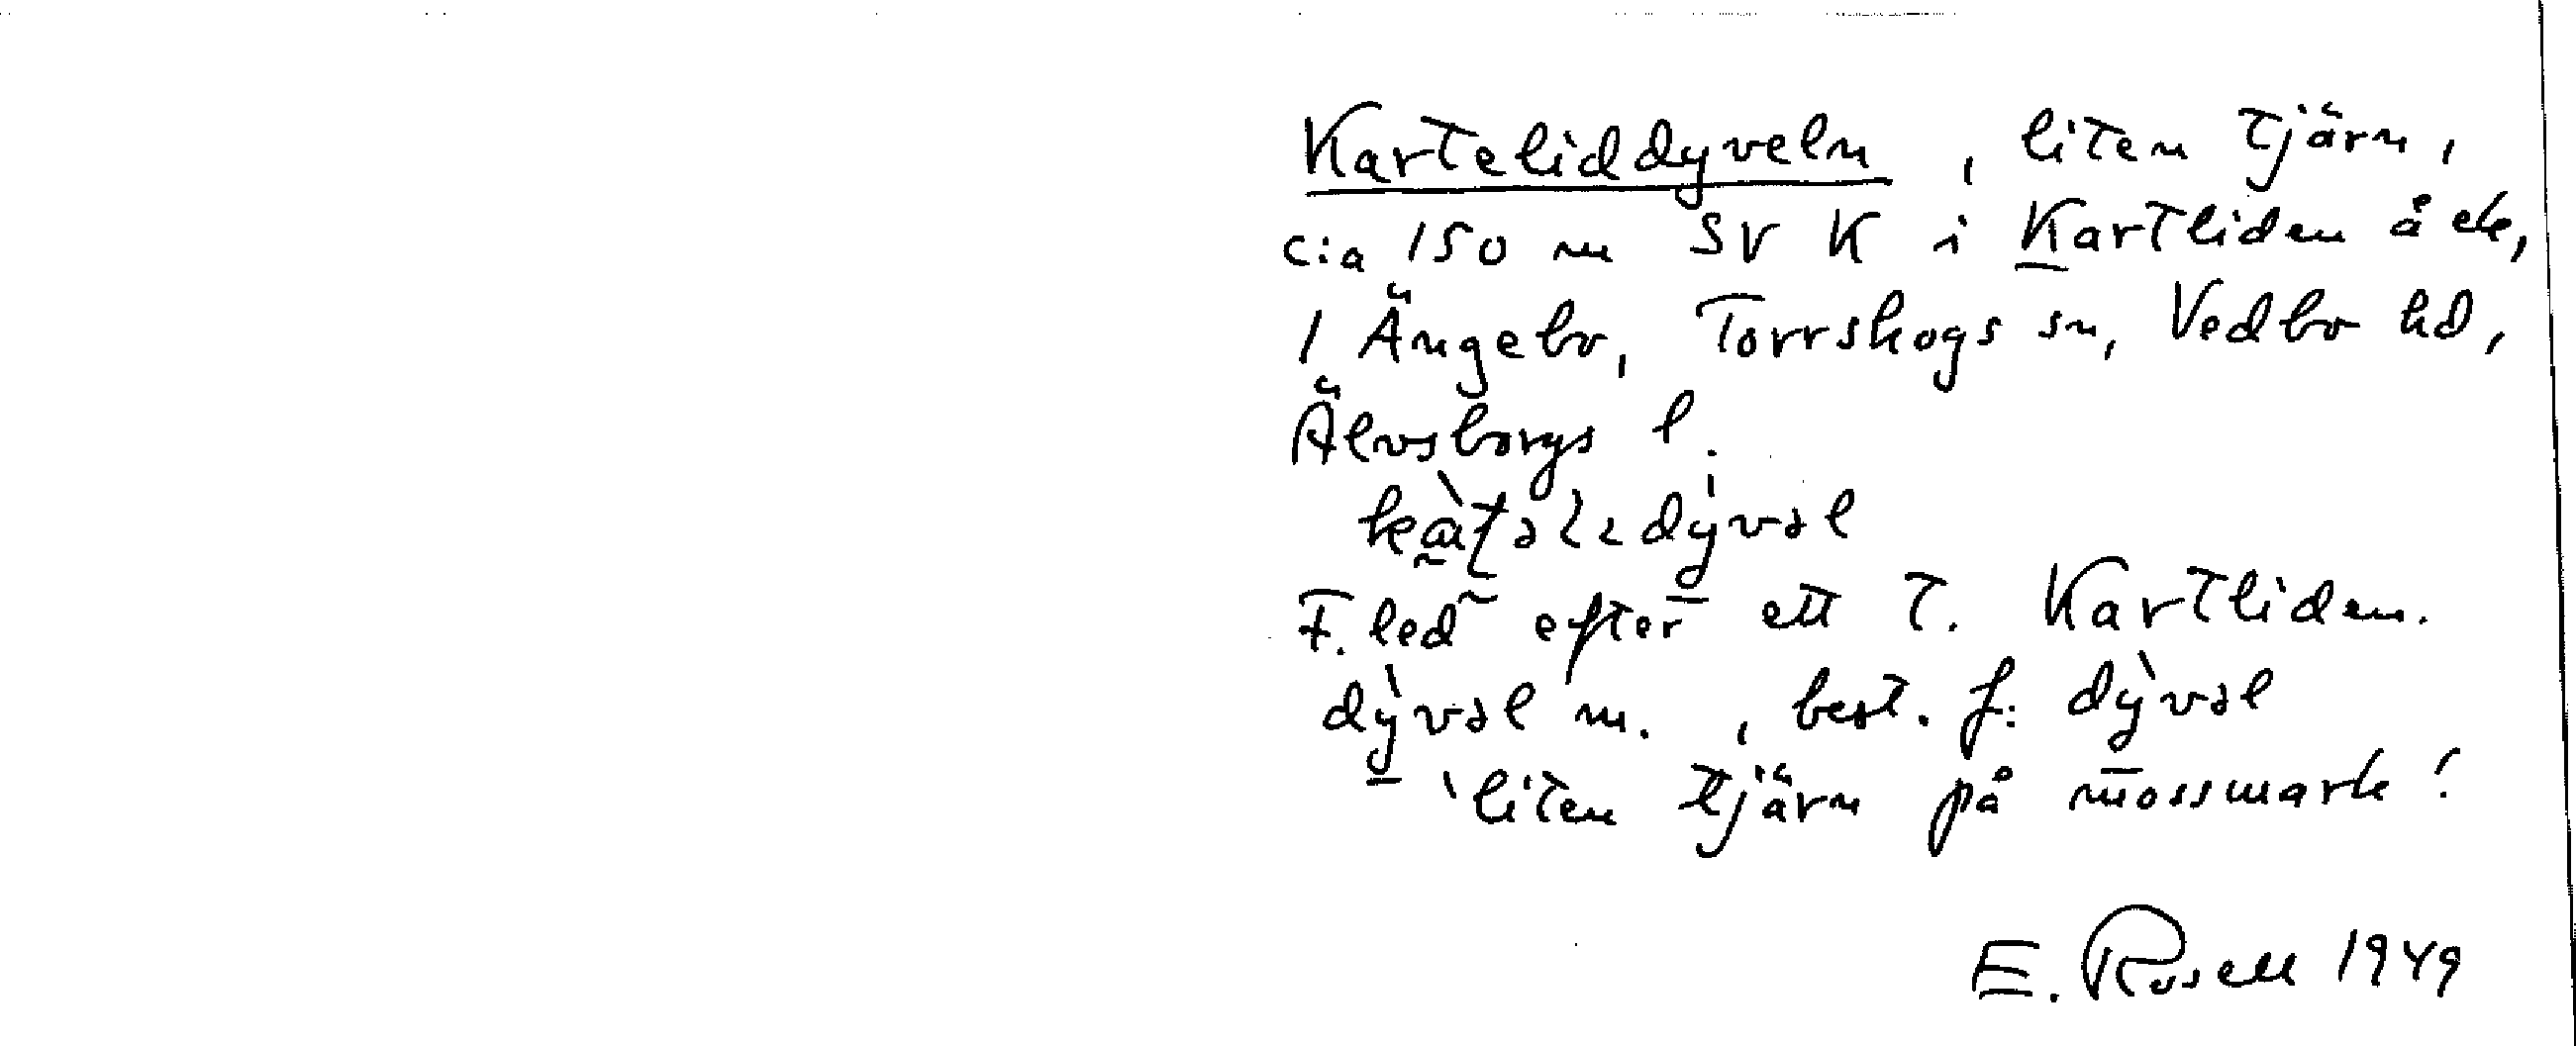 Karteliddyveln, liten tjärn,
c:a 150 m SV K i Kartliden å ek,
1 Ängebo, Torrskogs sn, Vedbo hd,
Älvsborgs l.
F.led efter ett T. Kartliden.
dỳvəl m., best. f: dỳvəl
'liten tjärn på mossmark'.
E. Rosell 1949